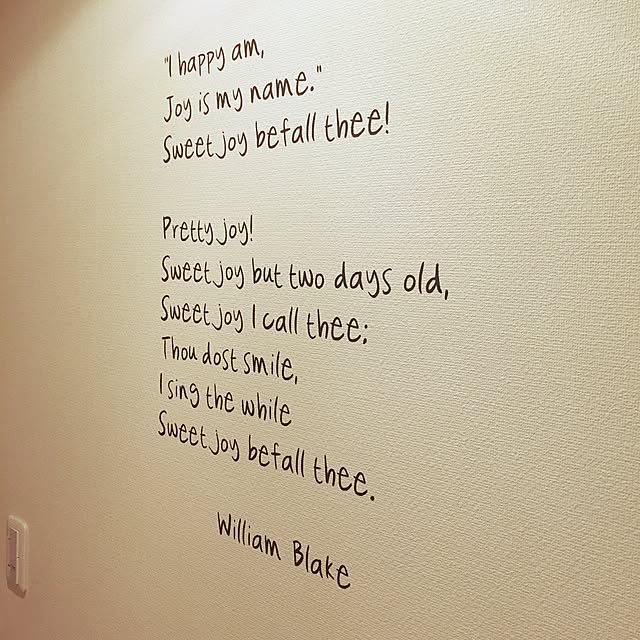 "I happy am,
Joy is my name."
Sweet joy befall thee!
Pretty joy!
Sweet joy but two days old,
Sweet joy I call thee;
Thou dost smile,
I sing the while
Sweet joy befall thee.
William Blake